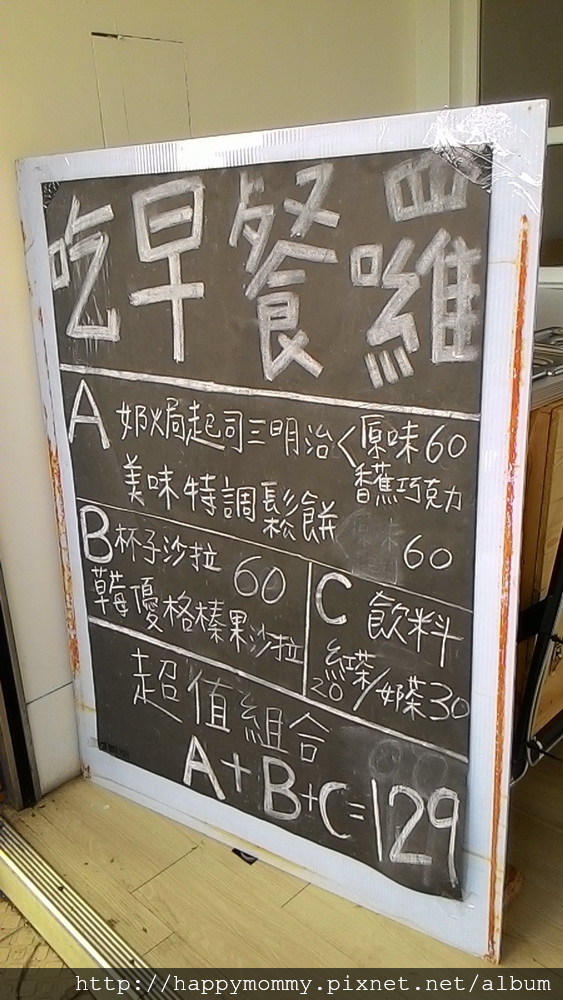 吃早餐囉
A 奶火局起司三明治く原味60
香蕉巧克力
美味特調鬆餅
60
B 杯子沙拉 60
草莓優格榛果沙拉
C 飲料
紅茶/奶茶30
20
超值組合
A+B+C=129
http://happymommy.pixnet.net/album